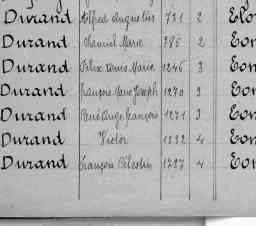 Durand Alfred Auguste 731 2
Durand Marie 785 2 Eon
Durand Felix Louis Marie 1246 3 Eon
Durand François Marie Joseph 1270 3 Eon
Durand René Ange François 1271 3 Eon
Durand Victor 1332 4 Eon
Durand François Célestin 1797 4 Eon